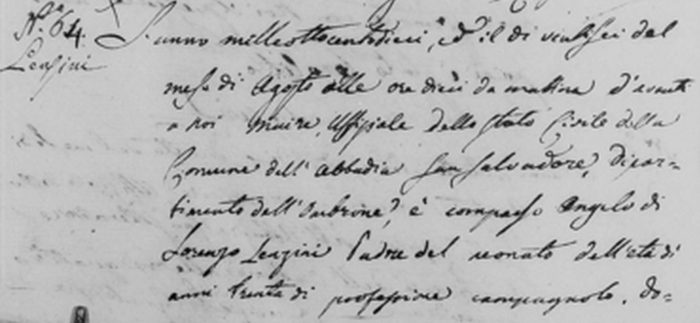 N.º 64. L'anno milleottocentodieci, ed il di ventisei del
Lenzini
mese di Agosto alle ore dieci da mattina d'avanti
a noi Maire, Uffiziale dello Stato Civile della
Comune dell'Abbadia San Salvadore, dipar-
timento dell'Ombrone, è comparso Angelo di
Lorenzo Lenzini Padre del neonato dell'età di
anni trenta di professione campagnolo, do-